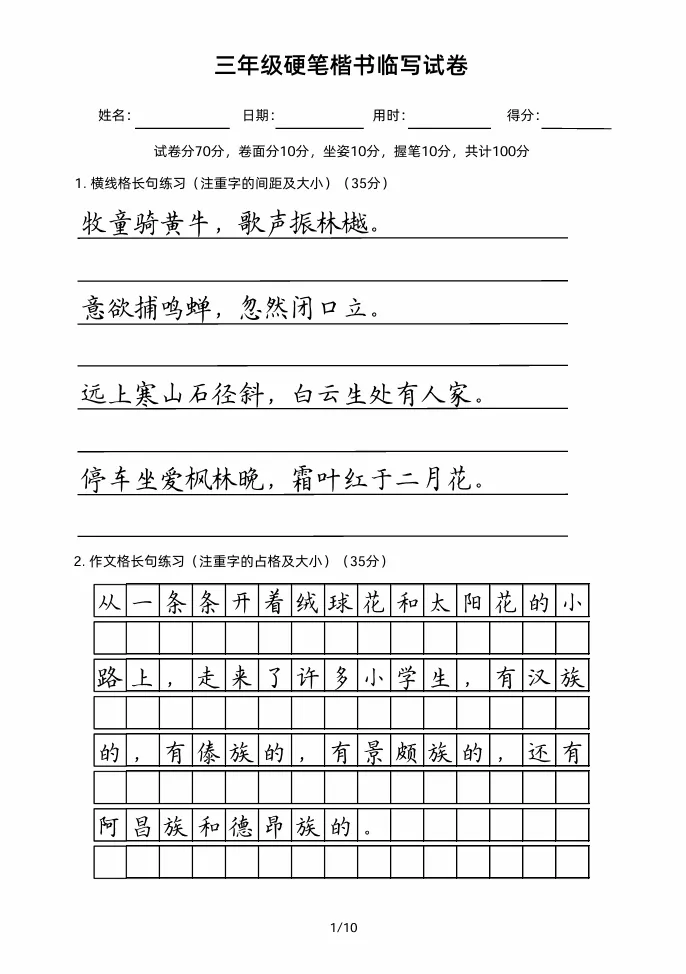 三年级硬笔楷书临写试卷
姓名： 日期： 用时： 得分：
试卷分70分，卷面分10分，坐姿10分，握笔10分，共计100分
1. 横线格长句练习（注重字的间距及大小）（35分）
牧童骑黄牛，歌声振林樾。
意欲捕鸣蝉，忽然闭口立。
远上寒山石径斜，白云生处有人家。
停车坐爱枫林晚，霜叶红于二月花。
2. 作文格长句练习（注重字的占格及大小）（35分）
从一条条开着绒球花和太阳花的小
路上，走来了许多小学生，有汉族
的，有傣族的，有景颇族的，还有
阿昌族和德昂族的。
1/10